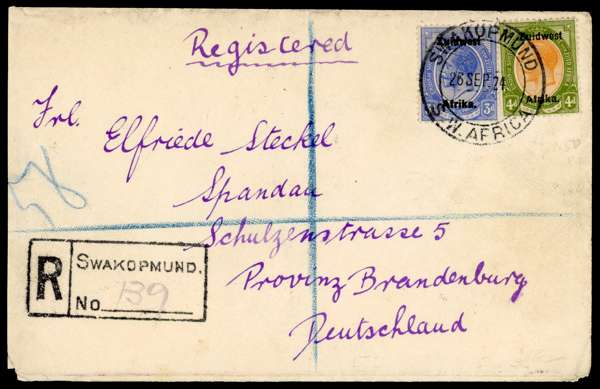 Registered
Zuidwest
Afrika.
3d
Zuidwest
Afrika.
4d 4d
SWAKOPMUND
26 SEP. 24
S.W. AFRICA
Frl. Elfriede Steckel
Spandau
Schulzenstrasse 5
Provinz Brandenburg
Deutschland
R SWAKOPMUND.
No 139